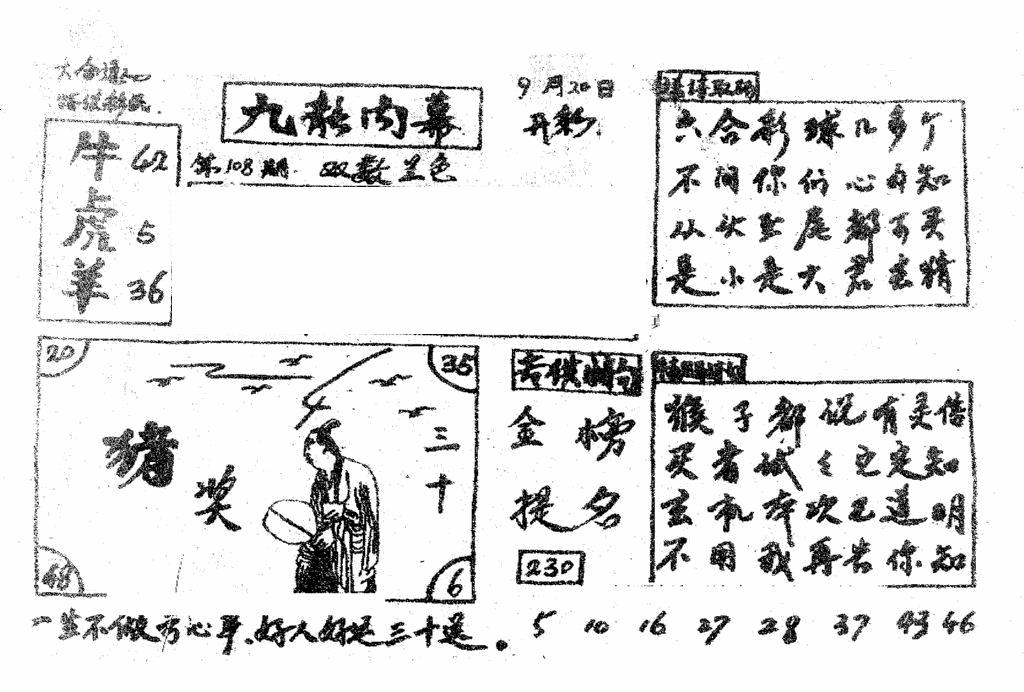 9月20日
开彩
九龙内幕
第108期
牛 42
虎 5
羊 36
六合彩球几多个
不问你们心有知
从头至尾都可买
是小是大君去精
20
35
猪
奖
三十
48
6
金榜
提名
230
猴子都说有灵借
买者试已定知
玄机本次已道明
不用我再告你知
一生不做亏心事、好人好运三十选。
5 10 16 27 28 37 43 46